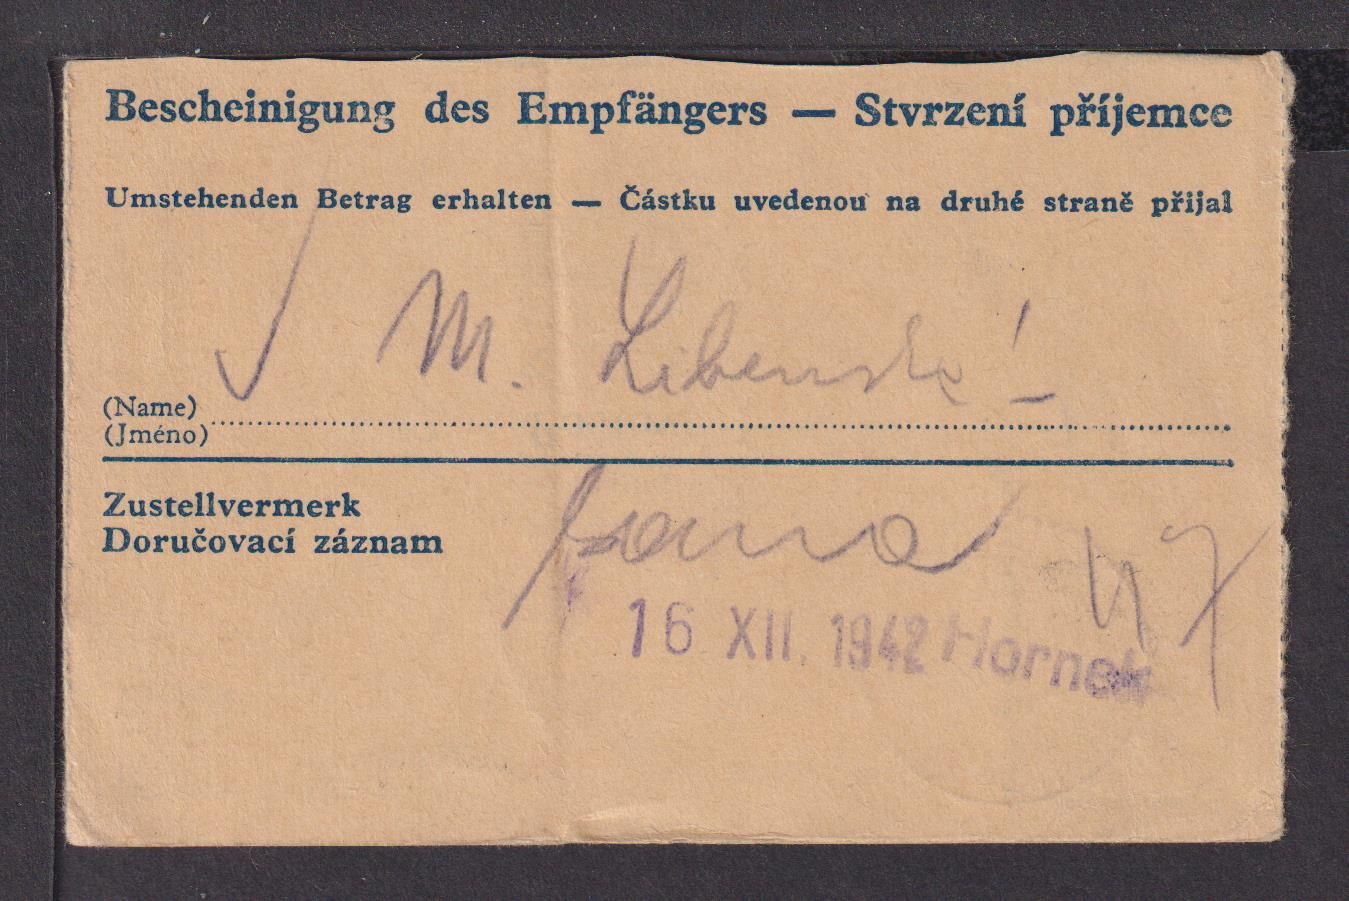 Bescheinigung des Empfängers — Stvrzení příjemce
Umstehenden Betrag erhalten — Částku uvedenou na druhé straně přijal
M. Libenská
(Name)
(Jméno)
Zustellvermerk
Doručovací záznam
16 XII. 1942 Hornek